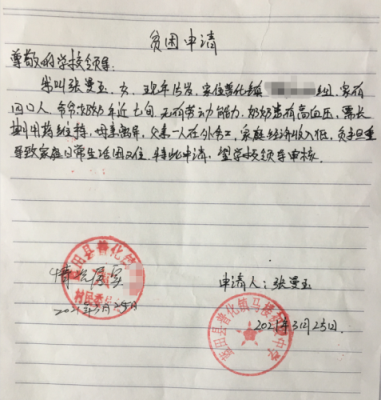 贫困申请
尊敬的学校领导:
我叫张曼玉,女,现年15岁,家住普化镇 组,家有
四口人,爷爷奶奶年近七旬,无有劳动能力,奶奶患有高血压,需长
期用药维持,母亲离异,父亲一人在外务工,家庭经济收入低,负担重
导致家庭日常生活困难,特此申请,望学校领导审核。
情况属实
申请人:张曼玉
2021年3月25日
2021年3月25日.
蓝田县普化镇
村民委员会
蓝田县普化镇马楼 中学